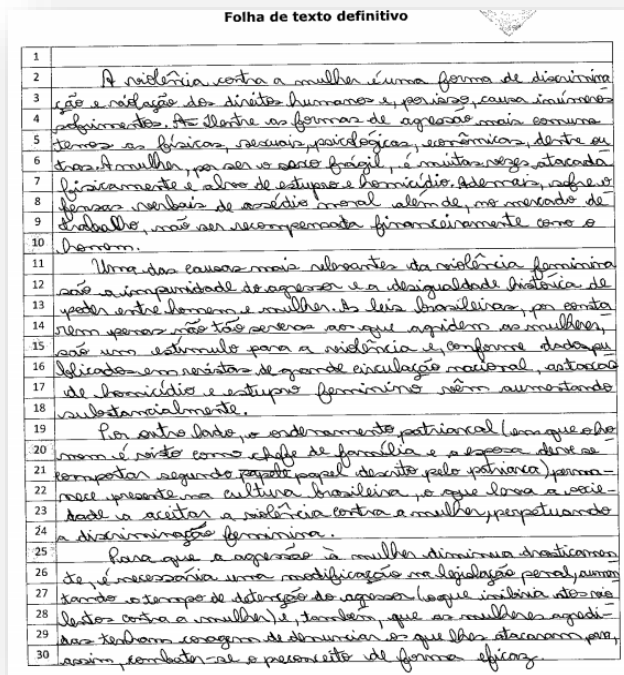 Folha de texto definitivo
1
2 A violência contra a mulher é uma forma de discrimina
3 ção e violação dos direitos humanos e, por isso, causa inúmeros
4 sofrimentos. Dentre as formas de agressão mais comuns
5 temos as físicas, sexuais, psicológicas, econômicas, dentre ou
6 tras. A mulher, por ser o sexo frágil, é muitas vezes atacada
7 fisicamente e alvo de estupro e homicídio. Ademais, sofre o
8 fensas verbais de assédio moral além de, no mercado de
9 trabalho, não ser recompensada financeiramente como o
10 homem.
11 Uma das causas mais relevantes da violência feminina
12 são a impunidade do agressor e a desigualdade histórica de
13 poder entre homem e mulher. As leis brasileiras, por consta
14 rem penas não tão severas aos que agridem as mulheres,
15 são um estímulo para a violência e, conforme dados pu
16 blicados em revistas de grande circulação nacional, as taxas
17 de homicídio e estupro feminino vêm aumentando
18 substancialmente.
19 Por outro lado, o ordenamento patriarcal (em que o ho
20 mem é visto como chefe de família e a esposa deve se
21 comportar segundo papel descrito pelo patriarca) perma-
22 nece presente na cultura brasileira, o que leva a socie-
23 dade a aceitar a violência contra a mulher, perpetuando
24 a discriminação feminina.
25 Para que a agressão à mulher diminua drasticamen
26 te, é necessária uma modificação na legislação penal, aumen
27 tando o tempo de detenção do agressor (o que inibiria atos vio
28 lentos contra a mulher) e, também, que as mulheres agredi-
29 das tenham coragem de denunciar os que lhes atacaram, para,
30 assim, combater-se o preconceito de forma eficaz.